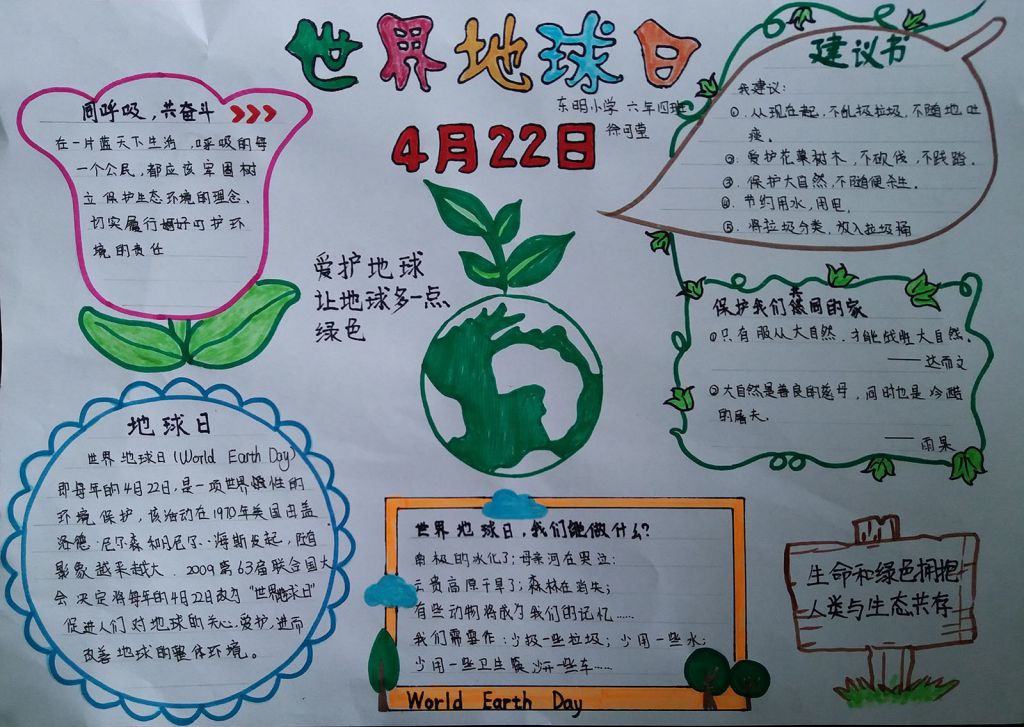 世界地球日
东明小学 六年四班
4月22日
同呼吸，共奋斗
在一片蓝天下生活，呼吸的每
一个公民，都应该牢固树
立保护生态环境的理念，
切实履行好呵护环
境的责任
爱护地球
让地球多一点
绿色
建议书
我建议：
①.从现在起，不乱扔垃圾，不随地吐
痰。
②.爱护花草树木，不砍伐，不践踏.
③.保护大自然，不随便杀生.
④.节约用水，用电.
⑤.将垃圾分类，放入垃圾桶
保护我们共同的家
①只有服从大自然，才能战胜大自然.
——达而文
②大自然是善良的慈母，同时也是冷酷
的屠夫.
——雨果
地球日
世界地球日(World Earth Day)
即每年的4月22日，是一项世界性的
环境保护，该活动在1970年美国由盖
洛德·尼尔森和丹尼斯·海斯发起，随
影象越来越大.2009第63届联合国大
会决定将每年的4月22日改为"世界地球日"
促进人们对地球的关心，爱护，进而
改善地球的整体环境。
世界地球日，我们能做什么？
南极的冰化了；母亲河在哭泣；
云贵高原干旱了；森林在消失；
有些动物将成为我们的记忆……
我们需要作：少扔一些垃圾；少用一些水；
少用一些卫生筷 少开一些车……
World Earth Day
生命和绿色拥抱
人类与生态共存